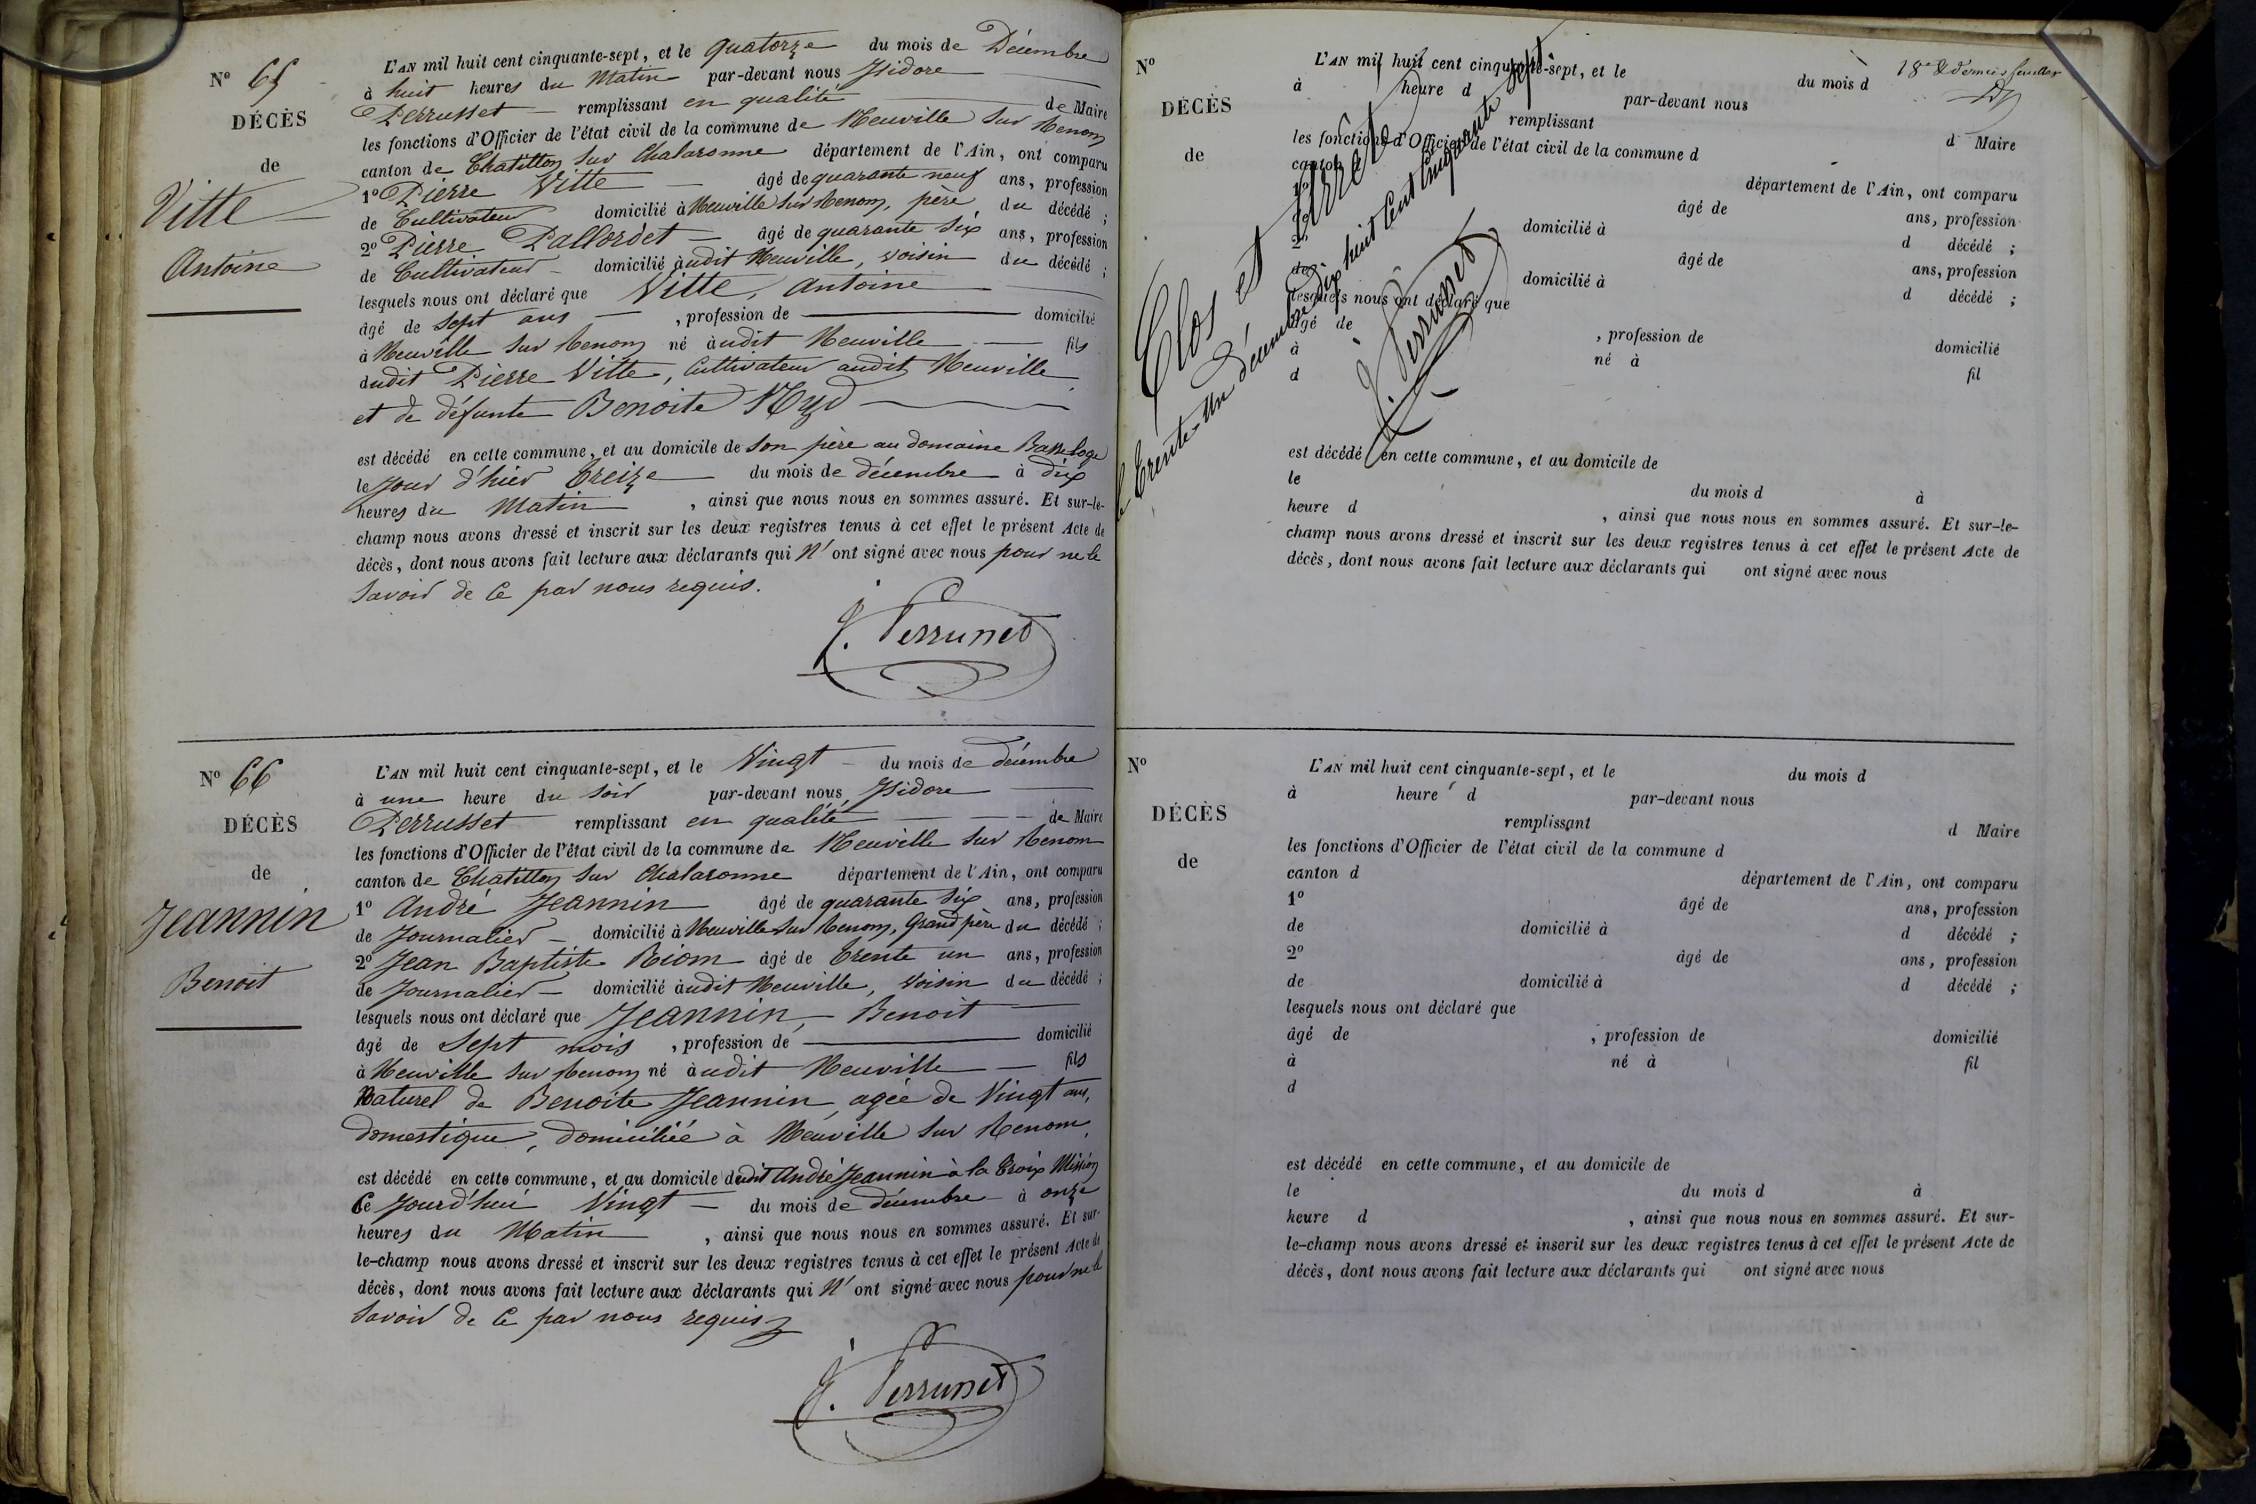 N° 65
DÉCÈS
de
Vitte
Antoine
L'AN mil huit cent cinquante-sept, et le quatorze du mois de Décembre
à huit heures du Matin par-devant nous Isidore
Perrusset remplissant en qualité de Maire
les fonctions d'Officier de l'état civil de la commune de Neuville sur Renom
canton de Chatillon sur Chalaronne département de l'Ain, ont comparu
1° Pierre Vitte âgé de quarante neuf ans, profession
de Cultivateur domicilié à Neuville sur Renom, père du décédé ;
2° Pierre Pallordet âgé de quarante six ans, profession
de Cultivateur domicilié audit Neuville, voisin du décédé ;
lesquels nous ont déclaré que Vitte, Antoine
âgé de sept ans , profession de domicilié
à Neuville sur Renom né audit Neuville fils
dudit Pierre Vitte, Cultivateur audit Neuville
et de défunte Benoite
est décédé en cette commune, et au domicile de son père au domaine Basse loge
le jour d'hier treize du mois de décembre à dix
heures du Matin , ainsi que nous nous en sommes assuré. Et sur-le-
champ nous avons dressé et inscrit sur les deux registres tenus à cet effet le présent Acte de
décès, dont nous avons fait lecture aux déclarants qui N'ont signé avec nous pour ne le
savoir de ce par nous requis.
J. Perrusset
N° 66
DÉCÈS
de
Jeannin
Benoit
L'AN mil huit cent cinquante-sept, et le Vingt du mois de décembre
à une heure du soir par-devant nous Isidore
Perrusset remplissant en qualité de Maire
les fonctions d'Officier de l'état civil de la commune de Neuville sur Renom
canton de Chatillon sur Chalaronne département de l'Ain, ont comparu
1° André Jeannin âgé de quarante six ans, profession
de Journalier domicilié à Neuville sur Renom, Grand père du décédé ;
2° Jean Baptiste Riom âgé de trente un ans, profession
de Journalier domicilié audit Neuville, voisin du décédé ;
lesquels nous ont déclaré que Jeannin, Benoit
âgé de sept mois , profession de domicilié
à Neuville sur Renom né audit Neuville fils
Naturel de Benoite Jeannin, agée de Vingt ans,
domestique, domiciliée à Neuville sur Renom,
est décédé en cette commune, et au domicile dudit André Jeannin à la Croix Mission
Ce Jourd'hui Vingt du mois de décembre à onze
heures du Matin , ainsi que nous nous en sommes assuré. Et sur-
le-champ nous avons dressé et inscrit sur les deux registres tenus à cet effet le présent Acte de
décès, dont nous avons fait lecture aux déclarants qui N'ont signé avec nous pour ne le
savoir de ce par nous requis
J. Perrusset
18e & dernier feuillet
N°
DÉCÈS
de
L'AN mil huit cent cinquante-sept, et le du mois d
à heure d par-devant nous
remplissant d Maire
les fonctions d'Officier de l'état civil de la commune d
canton département de l'Ain, ont comparu
âgé de ans, profession
domicilié à d décédé ;
2° âgé de ans, profession
de domicilié à d décédé ;
lesquels nous ont déclaré que
âgé de , profession de domicilié
à né à fil
d
est décédé en cette commune, et au domicile de
le du mois d à
heure d , ainsi que nous nous en sommes assuré. Et sur-le-
champ nous avons dressé et inscrit sur les deux registres tenus à cet effet le présent Acte de
décès, dont nous avons fait lecture aux déclarants qui ont signé avec nous
Clos et arrêté
le trente-un décembre dix huit cent cinquante sept
J. Perrusset
N°
DÉCÈS
de
L'AN mil huit cent cinquante-sept, et le du mois d
à heure d par-devant nous
remplissant d Maire
les fonctions d'Officier de l'état civil de la commune d
canton d département de l'Ain, ont comparu
1° âgé de ans, profession
de domicilié à d décédé ;
2° âgé de ans, profession
de domicilié à d décédé ;
lesquels nous ont déclaré que
âgé de , profession de domicilié
à né à fil
d
est décédé en cette commune, et au domicile de
le du mois d à
heure d , ainsi que nous nous en sommes assuré. Et sur-
le-champ nous avons dressé et inscrit sur les deux registres tenus à cet effet le présent Acte de
décès, dont nous avons fait lecture aux déclarants qui ont signé avec nous